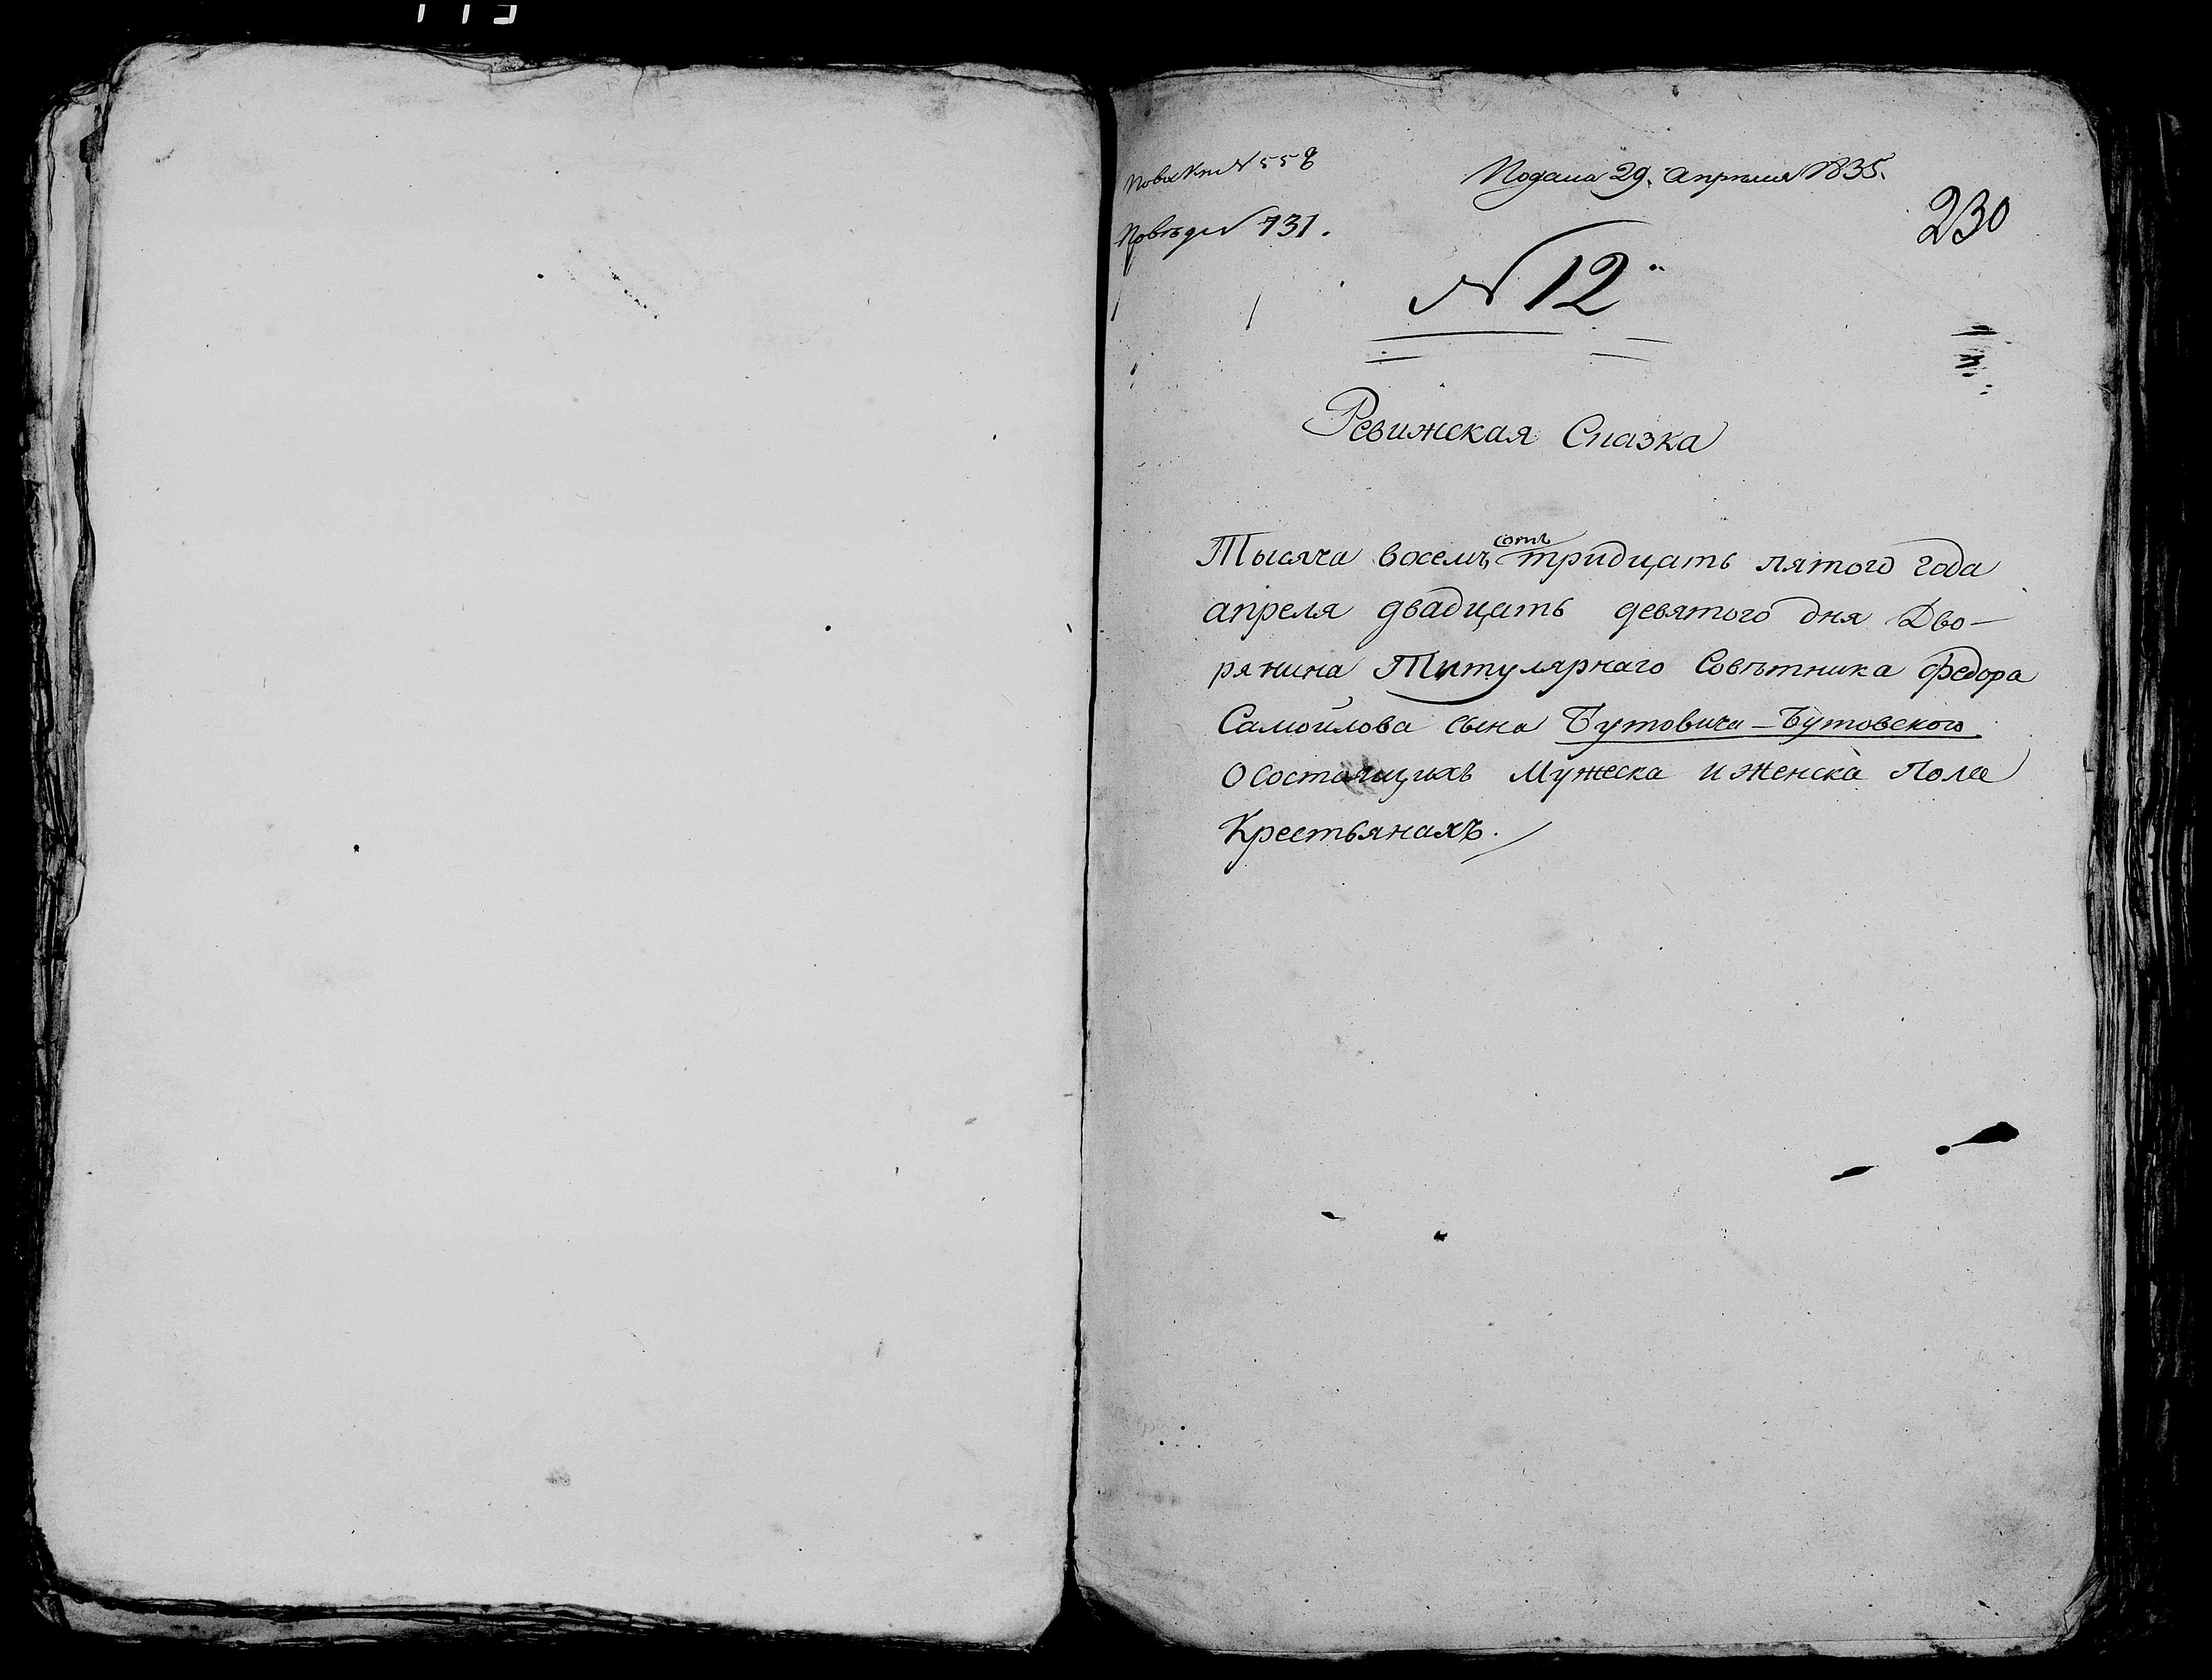 Подана 29. Апреля 1835.
№ 558
№ 731.
230
№ 12
Ревижская Сказка
Тысяча восемъ сотъ тридцать пятого года
апреля двадцать девятого дня Дво-
рянина Титулярнаго Совѣтника Федора
Самойлова сына Бутовича-Бутовского
О состоящихъ Мужеска и Женска Пола
Крестьянахъ.